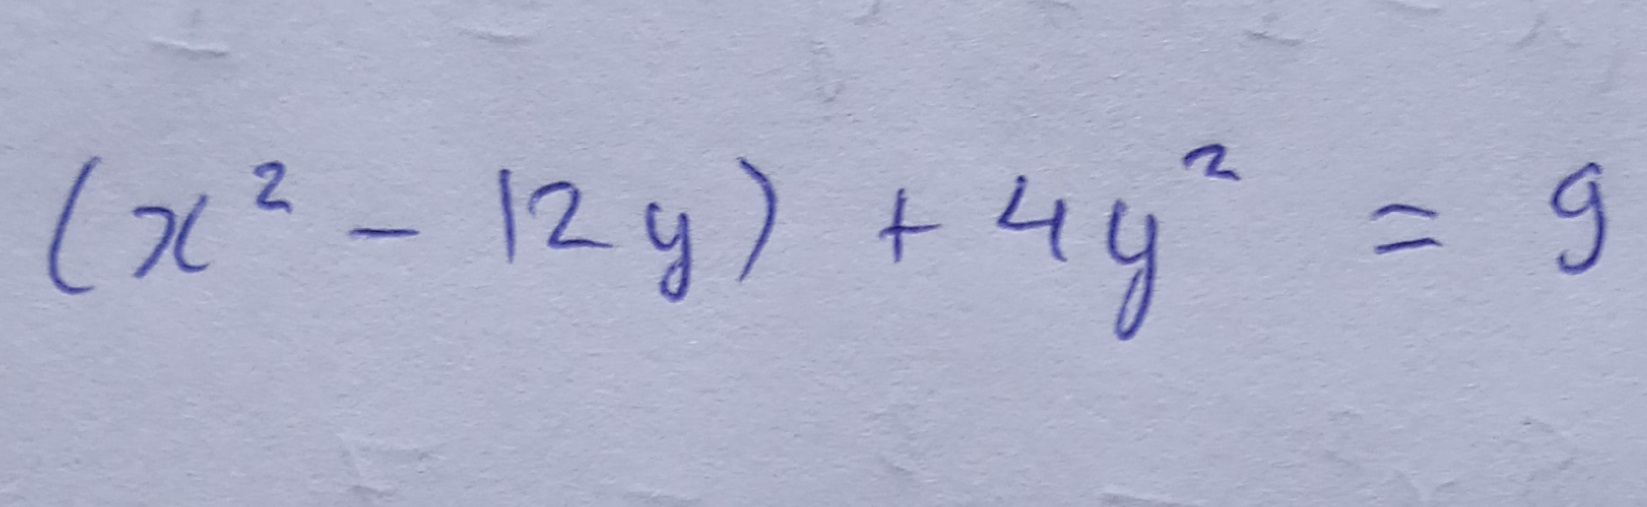 (x² - 12y) + 4y² = 9